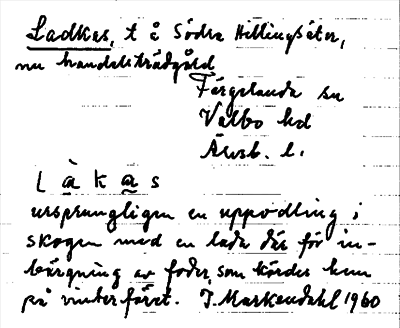 Ladkas, t å Södra Hillingsäter,
nu handelsträdgård
Färgelanda sn
Valbo hd
Älvsb. l.
l à k a s
ursprungligen en uppodling i
skogen med en lada där för in-
bärgning av foder, som kördes hem
på vinterföret. J. Markendahl 1960